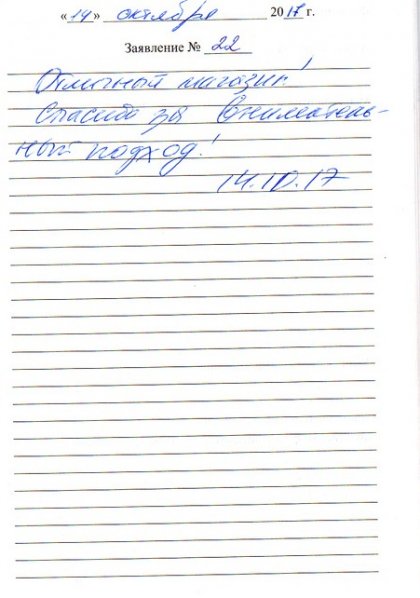 «14» октября 2017 г.
Заявление № 22
Отличный магазин!
Спасибо за вниматель-
ный подход!
14.10.17